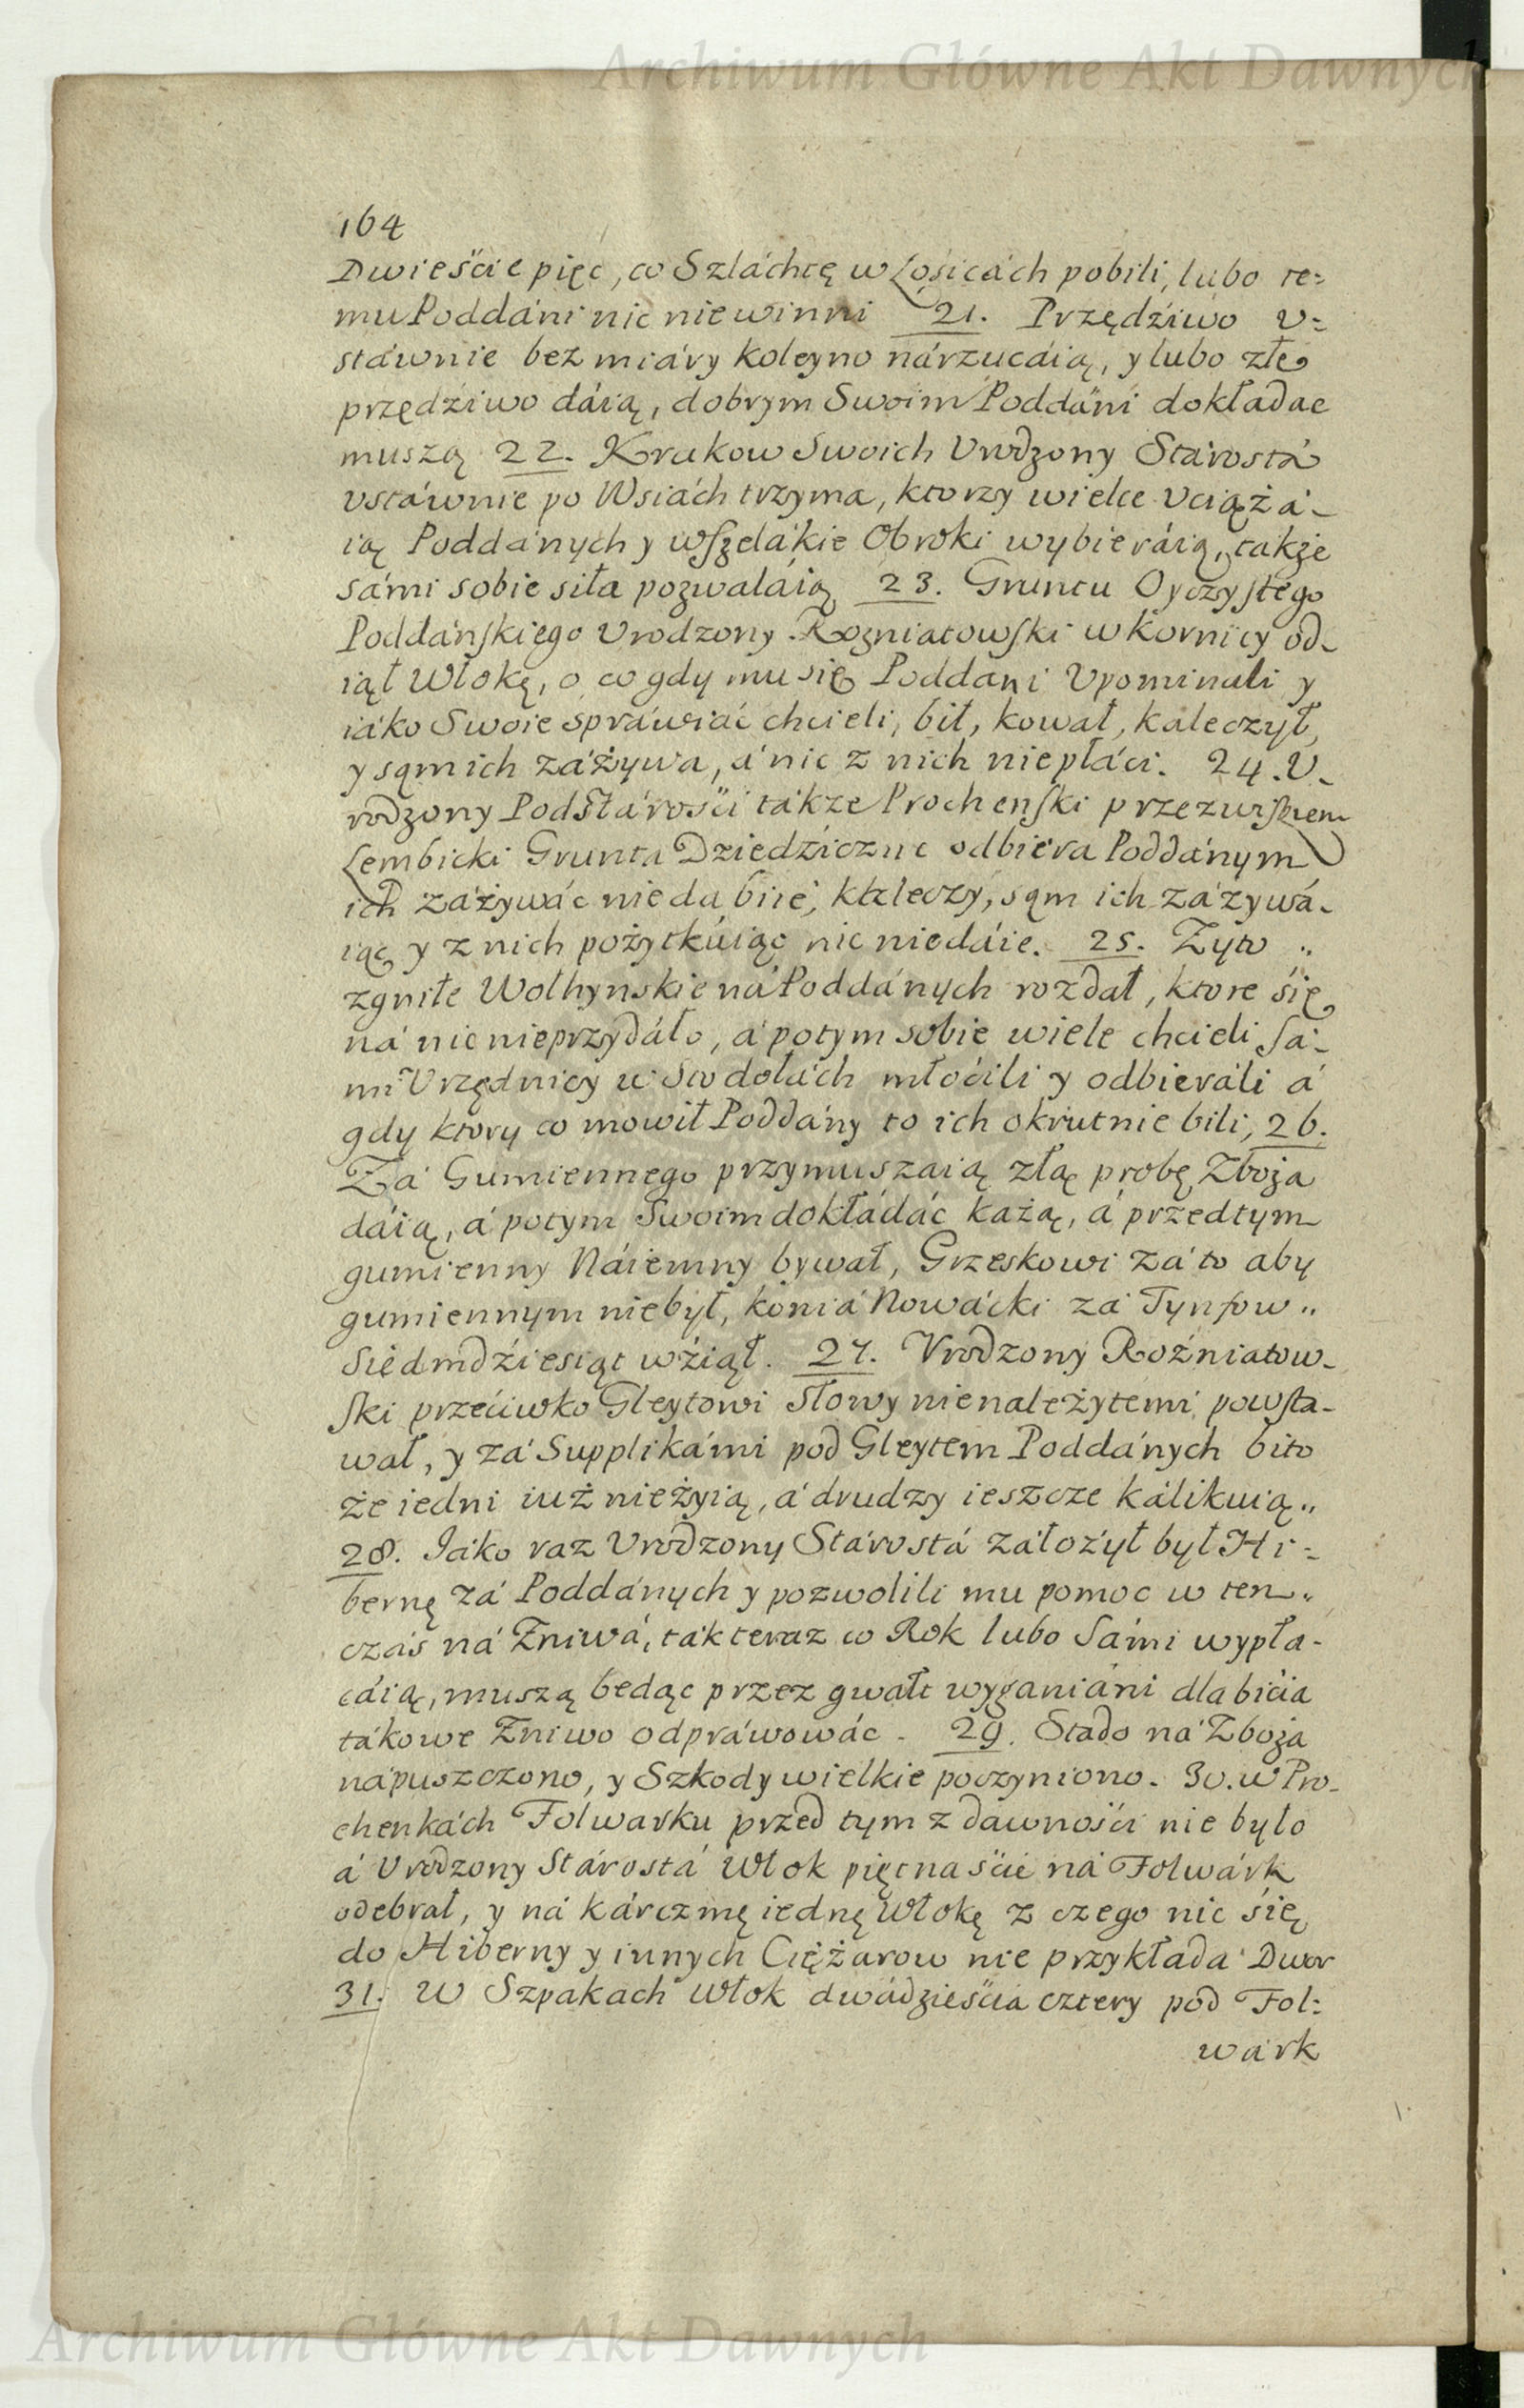 Archiwum Główne Akt Dawnych
164
Dwieście pięc, co Szláchtę w Łosicách pobili, lubo te=
mu Poddáni nic niewinni 21. Przędźiwo v=
stáwnie bez miáry koleyno nárzucáią, y lubo złe
przędźiwo dáią, dobrym Swoim Poddáni dokładac
muszą 22. Krukow Swoich Vrodzony Stárostá
vstáwnie po Wsiách trzyma, ktorzy wielce vciążá-
ią Poddánych y wszelákie Obroki wybieráią, także
sámi sobie siła pozwaláią 23. Gruntu Oyczystego
Poddáńskiego Vrodzony Rozniatowski w Kornicy od-
iął Włokę, o co gdy mu się Poddani Vpominali y
iáko Swoie spráwiáć chcieli, bił, kował, kaleczył,
y sąm ich záżywa, á nic z nich niepłáci. 24. V-
rodzony Podstárości tákze Prochenski przezwiskiem
Łembicki Grunta Dziedźiczne odbiera Poddánym
ich záżywác nieda biie, kaleczy, sąm ich zázywá-
iąc y z nich pożytkuiąc nic niedáie. 25. Żyto
zgniłe Wołhynskie ná Poddánych rozdał, ktore się
ná nic nieprzydáło, á potym sobie wiele chcieli Sá-
mi Vrzędnicy w Stodołách młoćili y odbieráli á
gdy ktory co mowił Poddány to ich okrutnie bili, 26.
Zá Gumiennego przymuszaią złą probę Zboża
dáią, á potym Swoim dokłádáć każą, á przedtym
gumienny Náiemny bywał, Grzeskowi zá to aby
gumiennym niebył, koniá Nowácki zá Tynfow
Siedmdźiesiąt wźiął. 27. Vrodzony Roźniatow-
ski przećiwko Gleytowi słowy nienależytemi powsta-
wał, y zá Supplikámi pod Gleytem Poddánych bito
że iedni iuż nieżyią, á drudzy ieszcze kálikuią
28. Iáko raz Vrodzony Stárostá záłożył był Hi=
bernę zá Poddánych y pozwolili mu pomoc w ten
czás ná Żniwá, ták teraz co Rok lubo Sámi wypła-
cáią, muszą będąc przez gwałt wyganiáni dla bićia
tákowe Żniwo odpráwowác. 29. Stado ná Zboża
nápuszczono, y Szkody wielkie poczyniono. 30. w Pro-
chenkách Folwarku przed tym z dawności nie było
á Vrodzony Stárostá Włok piętnaście ná Folwárk
odebrał, y ná kárczmę iednę Włokę z czego nic się
do Hiberny y innych Ciężarow nie przykłada Dwor
31. W Szpakach Włok dwádzieścia cztery pod Fol=
wárk
Archiwum Główne Akt Dawnych